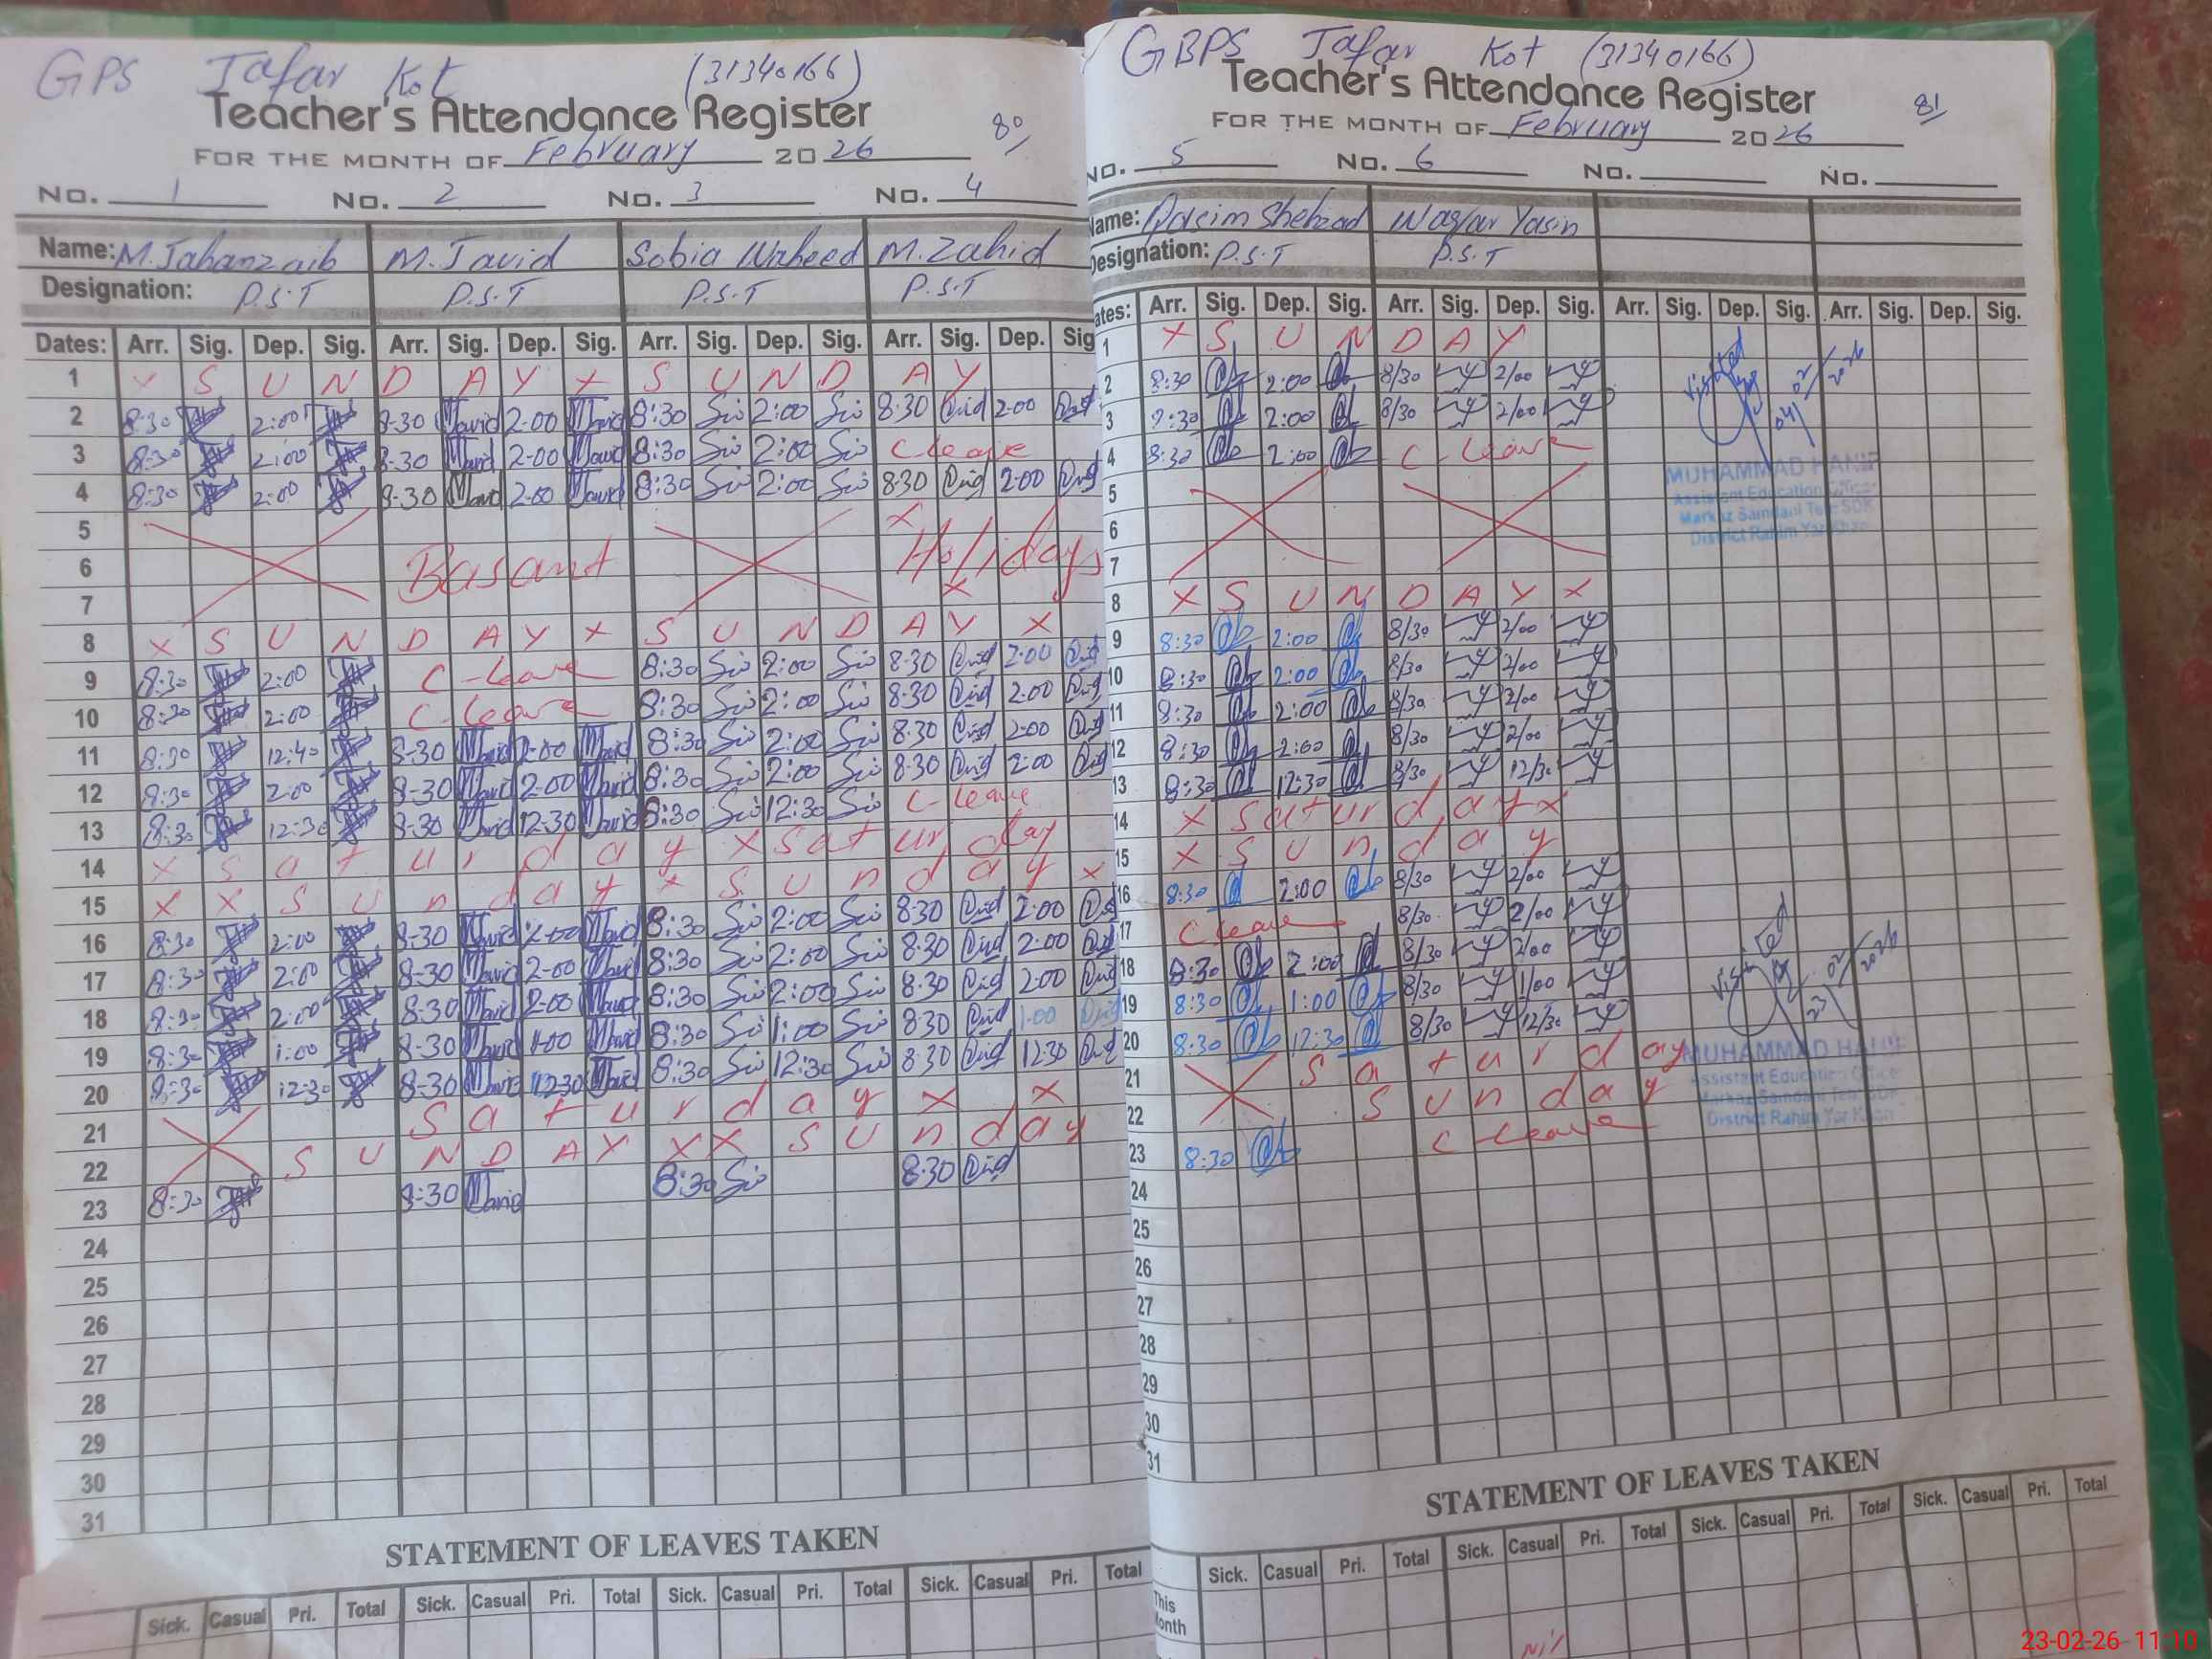 GPS Jafar Kot (31340166)
Teacher's Attendance Register
80
FOR THE MONTH OF February 2026
No. 1 No. 2 No. 3 No. 4
Name: M. Jahanzaib M. Javid Sobia Waheed M. Zahid
Designation: P.S.T P.S.T P.S.T P.S.T
Dates: Arr. Sig. Dep. Sig. Arr. Sig. Dep. Sig. Arr. Sig. Dep. Sig. Arr. Sig. Dep. Sig
1 x S U N D A Y x S U N D A Y
2 8:30 2:00 8-30 2-00 8:30 2:00 8:30 2:00
3 8:30 2:00 8-30 2-00 8:30 2:00 C leave
4 8:30 2:00 8-30 2-00 8:30 2:00 8:30 2:00
5
6 Basant Holidays
7
8 x S U N D A Y x S U N D A Y x
9 8:30 2:00 C-leave 8:30 2:00 8:30 2:00
10 8:30 2:00 C-leave 8:30 2:00 8:30 2:00
11 8:30 12:40 8-30 2-00 8:30 2:00 8:30 2:00
12 8:30 2:00 8-30 2-00 8:30 2:00 8:30 2:00
13 8:30 12:30 8-30 12-30 8:30 12:30 C-leave
14 x S a t u r d a y x Saturday
15 x x S U n d a y x S U n d a y x
16 8:30 2:00 8-30 2-00 8:30 2:00 8:30 2:00
17 8:30 2:00 8-30 2-00 8:30 2:00 8:30 2:00
18 8:30 2:00 8-30 2-00 8:30 2:00 8:30 2:00
19 8:30 1:00 8-30 1-00 8:30 1:00 8:30 1:00
20 8:30 12:30 8-30 12-30 8:30 12:30 8:30 12:30
21 S a t u r d a y x x
22 S U N D A Y x x S U n d a y
23 8:30 8-30 8:30 8:30
24
25
26
27
28
29
30
31
STATEMENT OF LEAVES TAKEN
Sick. Casual Pri. Total Sick. Casual Pri. Total Sick. Casual Pri. Total Sick. Casual Pri. Total
GBPS Jafar Kot (31340166)
Teacher's Attendance Register
81
FOR THE MONTH OF February 2026
No. 5 No. 6 No. No.
Name: Shehzad Waqar Yasin
Designation: P.S.T P.S.T
ates: Arr. Sig. Dep. Sig. Arr. Sig. Dep. Sig. Arr. Sig. Dep. Sig. Arr. Sig. Dep. Sig.
1 x S U N D A Y
2 8:30 2:00 8/30 2/00
3 8:30 2:00 8/30 2/00
4 8:30 2:00 C-leave
5
6
7
8 x S U N D A Y x
9 8:30 2:00 8/30 2/00
10 8:30 2:00 8/30 2/00
11 8:30 2:00 8/30 2/00
12 8:30 2:00 8/30 2/00
13 8:30 12:30 8/30 12/30
14 x Saturday x
15 x S U n d a y
16 8:30 2:00 8/30 2/00
17 C leave 8/30 2/00
18 8:30 2:00 8/30 2/00
19 8:30 1:00 8/30 1/00
20 8:30 12:30 8/30 12/30
21 S a t u r d a y
22 S U n d a y
23 8:30 C leave
24
25
26
27
28
29
30
31
Visited
04/02/2026
MUHAMMAD HANIF
Assistent Education Officer
Markaz Samdani Teh: SDK
District Rahim Yar Khan
Visited
23/02/2026
MUHAMMAD HANIF
Assistent Education Office
Markaz Samdani Teh: SDK
District Rahim Yar Khan
STATEMENT OF LEAVES TAKEN
Sick. Casual Pri. Total Sick. Casual Pri. Total Sick. Casual Pri. Total Sick. Casual Pri. Total
This
onth
Nil
23-02-26 11:10